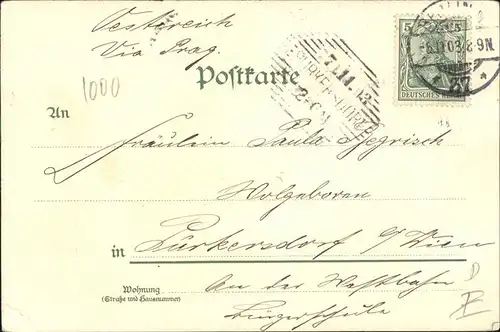 Oestreich
Via Prag.
5 5
6.11.03. 8-9N.
DEUTSCHES REICH
7.11.03
Postkarte
1000
An
Fräulein Paula
Wolgeboren
in Purkersdorf b/Wien
Wohnung
(Straße und Hausnummer)
An der Westbahn
Bürgerschule